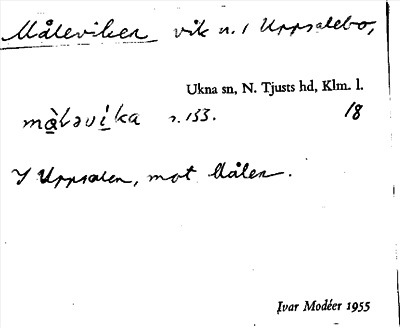 Måleviken vik n. i Uppsalebo,
Ukna sn, N. Tjusts hd, Klm. l.
mạ̀ləví̤ka s. 153. 18
I Uppsalen, mot Målen.
Ivar Modéer 1955